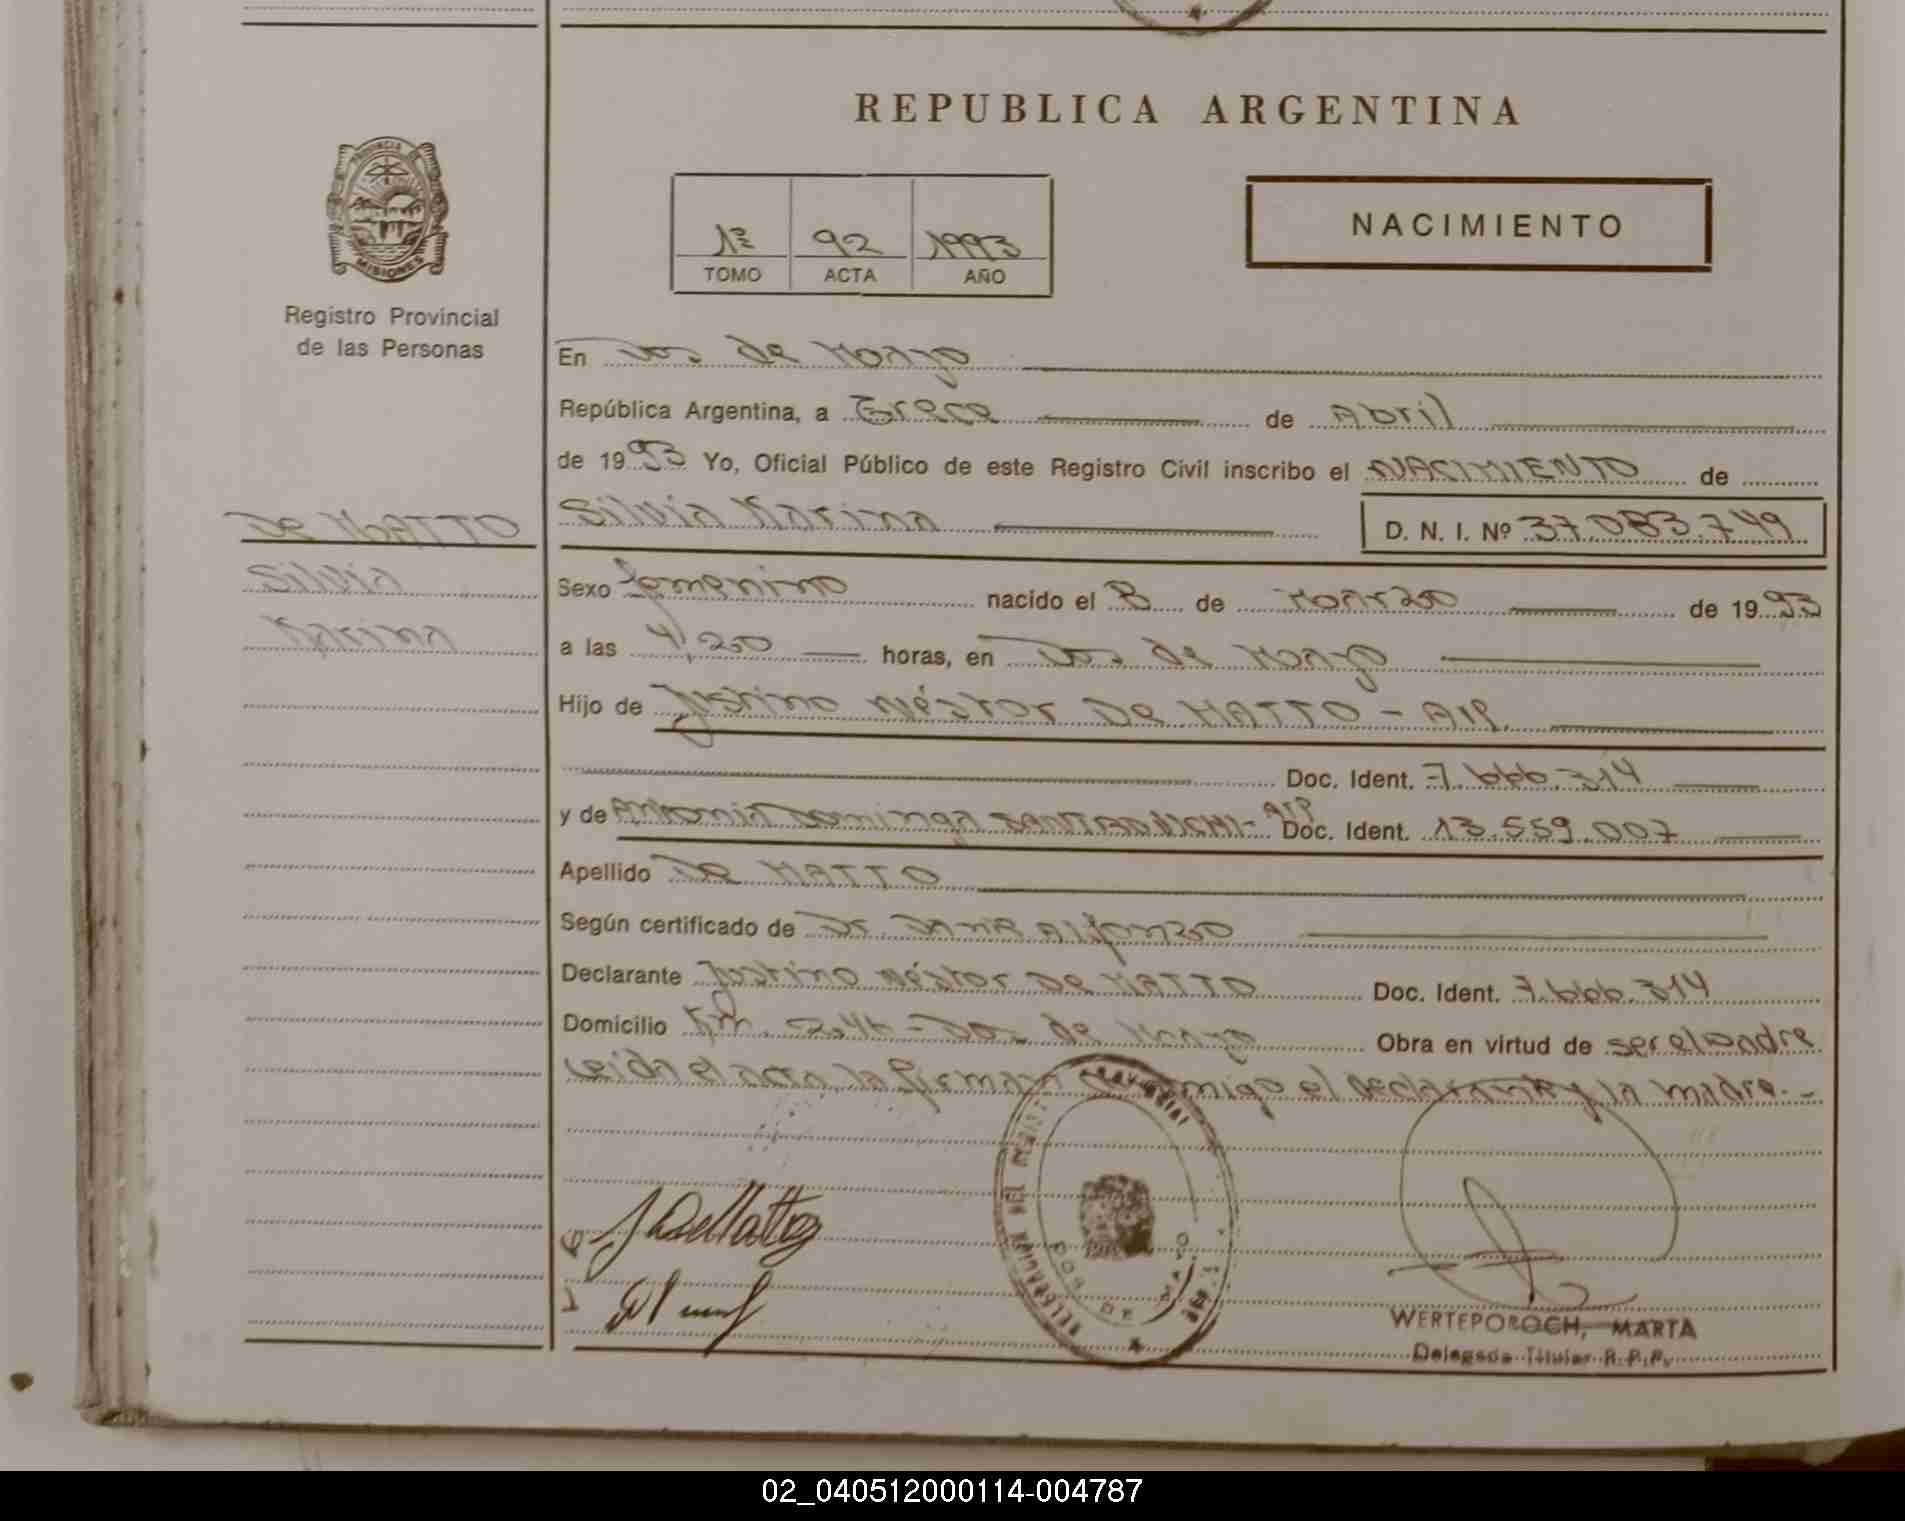 REPUBLICA ARGENTINA
PROVINCIA DE
MISIONES
Registro Provincial
de las Personas
1º 92 1993
TOMO ACTA AÑO
NACIMIENTO
En Dos de Mayo
República Argentina, a Trece de Abril
de 1993 Yo, Oficial Público de este Registro Civil inscribo el NACIMIENTO de
DE MATTO
Silvia Karina D. N. I. Nº 37.083.749
Silvia
Karina
Sexo femenino nacido el 8 de Marzo de 1993
a las 4,20 horas, en Dos de Mayo
Hijo de Justino Néstor De MATTO - Arg.
Doc. Ident. 7.666.314
y de Antonia Dominga Doc. Ident. 13.559.007
Apellido De MATTO
Según certificado de Dr. Alfonzo
Declarante Justino Néstor De MATTO Doc. Ident. 7.666.314
Domicilio Km. Dos de Mayo Obra en virtud de ser el padre
Leida el acta la firman conmigo el declarante y la madre.-
DELEGACION DEL REGISTRO PROVINCIAL
DOS DE MAYO
WERTEPOROCH, MARTA
Delegada Titular R.P.P.
02_040512000114-004787